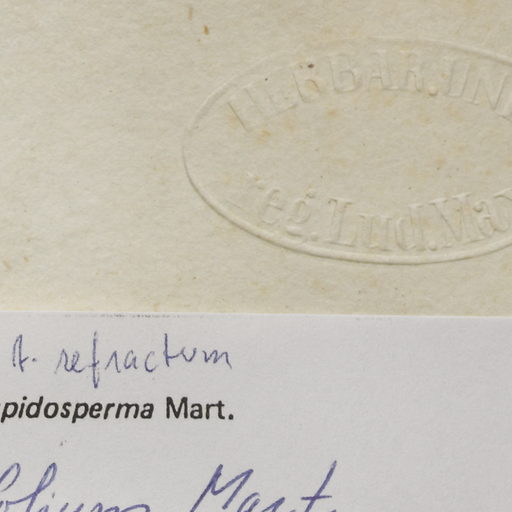 HERBAR. UNI
reg. Lud. Max
A. refractum
pidosperma Mart.
olium Mart.